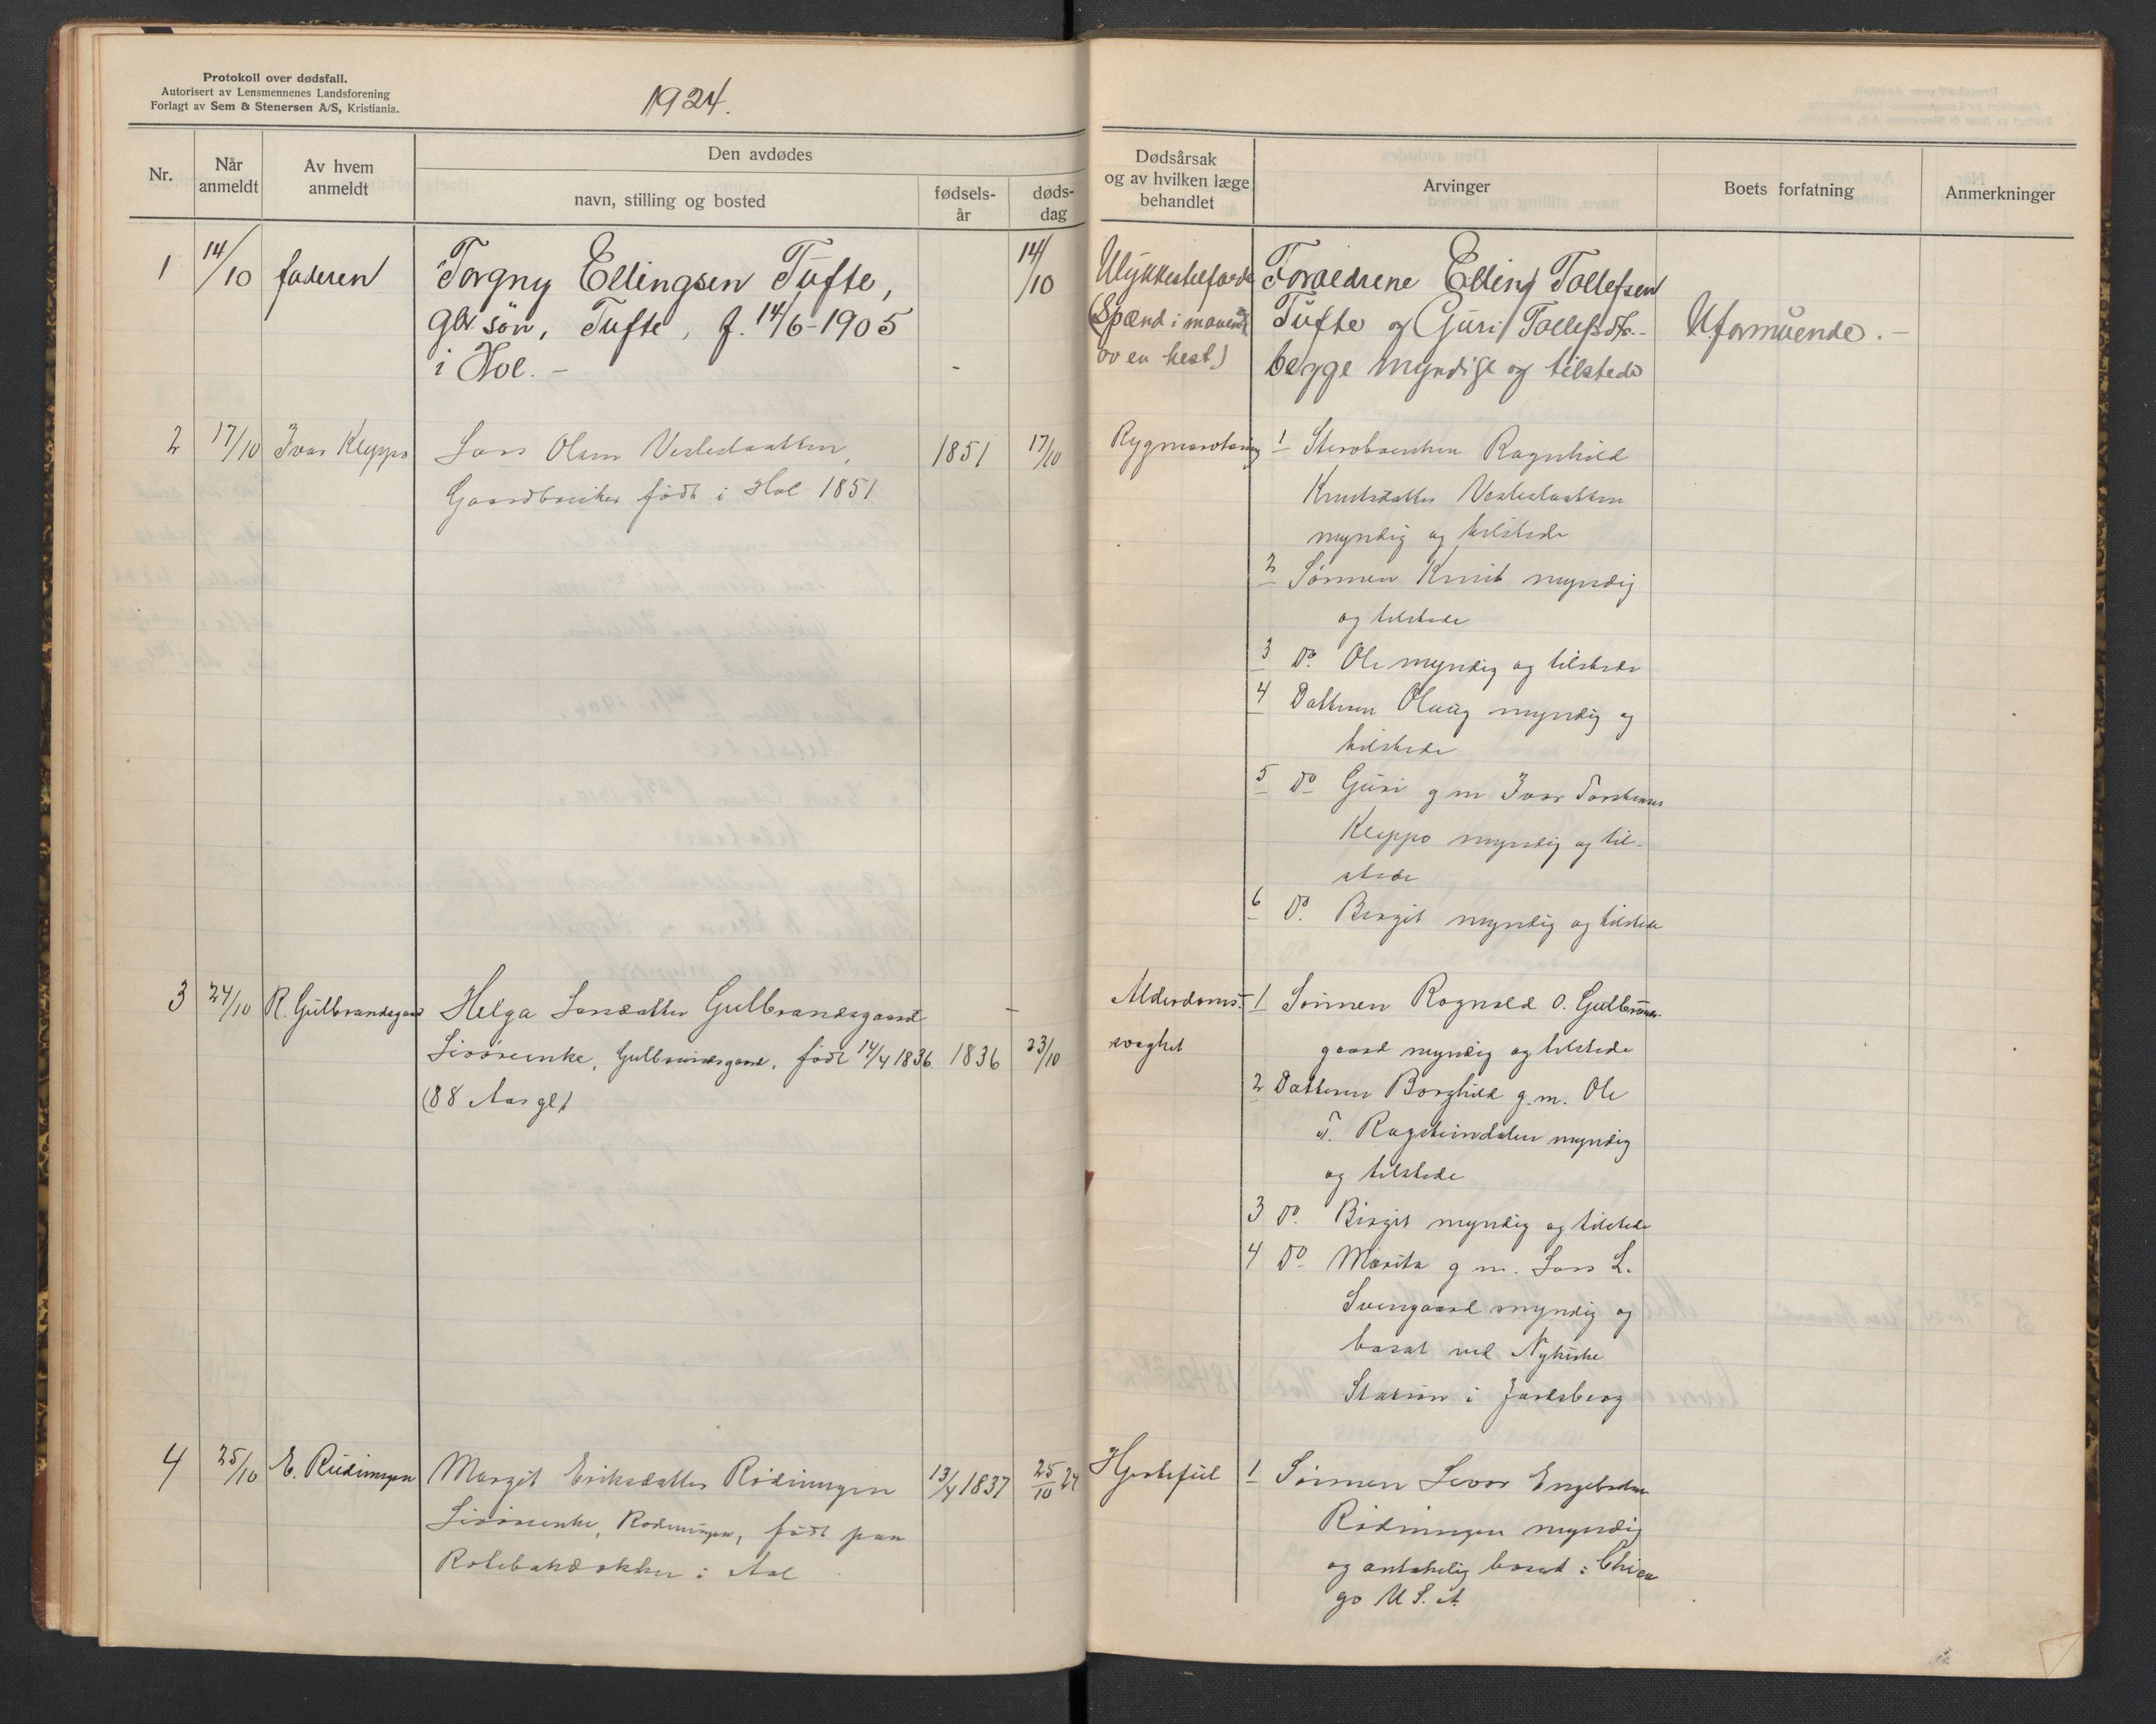 Protokoll over dødsfall.
Autorisert av Lensmennenes Landsforening
Forlagt av Sem & Stenersen A/S, Kristiania.
1924.
Nr.
Når anmeldt
Av hvem anmeldt
Den avdødes
navn, stilling og bosted
fødsels-år
døds-dag
Dødsårsak og av hvilken læge behandlet
Arvinger
Boets forfatning
Anmerkninger
1 14/10 faderen Torgny Ellingsen Tufte, 14/10
gbr søn, Tufte, f. 14/6-1905
i Hol. -
Ulykkestilfælde
(Spænd i maven
av en hest)
Forældrene Elling Tollefsen
Tufte og Guri Tollefsdtr. -
begge myndige og tilstede
Uformuende. -
2 17/10 Ivar Kleppo Lars Olsen Vesleslaatten, 1851 17/10
Gaardbruker født i Hol 1851
Rygmarvtæring
1 Steroboenken Ragnhild
Knutsdatter Vesleslaatten
myndig og tilstede
2 Sønnen Knut myndig
og tilstede
3 Do. Ole myndig og tilstede
4 Datteren Olaug myndig og
tilstede
5 Do Guri g m Ivar Torsteinsen
Kleppo myndig og til-
stede
6 Do. Birgit myndig og tilstede
3 24/10 R. Gulbrandsgaard Helga Larsdatter Gulbrandsgaard -
Livørenke, Gulbrandsgaard, født 14/4 1836 1836 23/10
(88 Aar gl)
Alderdoms-
svaghet
1 Sønnen Ragnvald O. Gulbrands-
gaard myndig og tilstede
2 Datteren Borghild g.m. Ole
T. Ragsteindalen myndig
og tilstede
3 Do. Birgit myndig og tilstede
4 Do Marita g m. Lars L.
Svengaard myndig og
bosat ved Nykirke
Station i Jarlsberg
4 25/10 E. Rudningen Margit Eriksdatter Rødningen 13/4 1837 25/10 24
Livørenke, Rødningen, født paa
i Aal
Hjertefeil
1 Sønnen Levor Engebretsen
Rødningen myndig
og antakelig bosat i Chica
go U.S.A